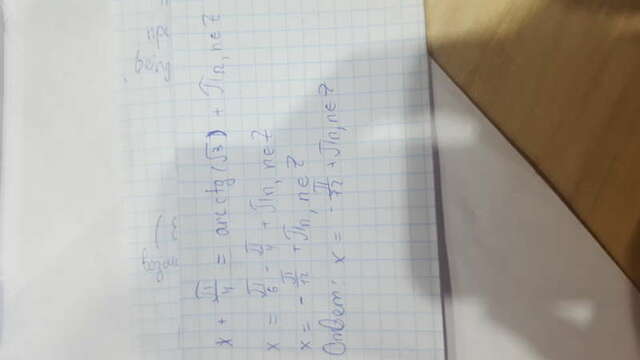 x + π/4 = arcctg(√3) + πn, n∈Z
x = π/6 - π/4 + πn, n∈Z
x = - π/12 + πn, n∈Z
Ответ: x = - π/12 + πn, n∈Z